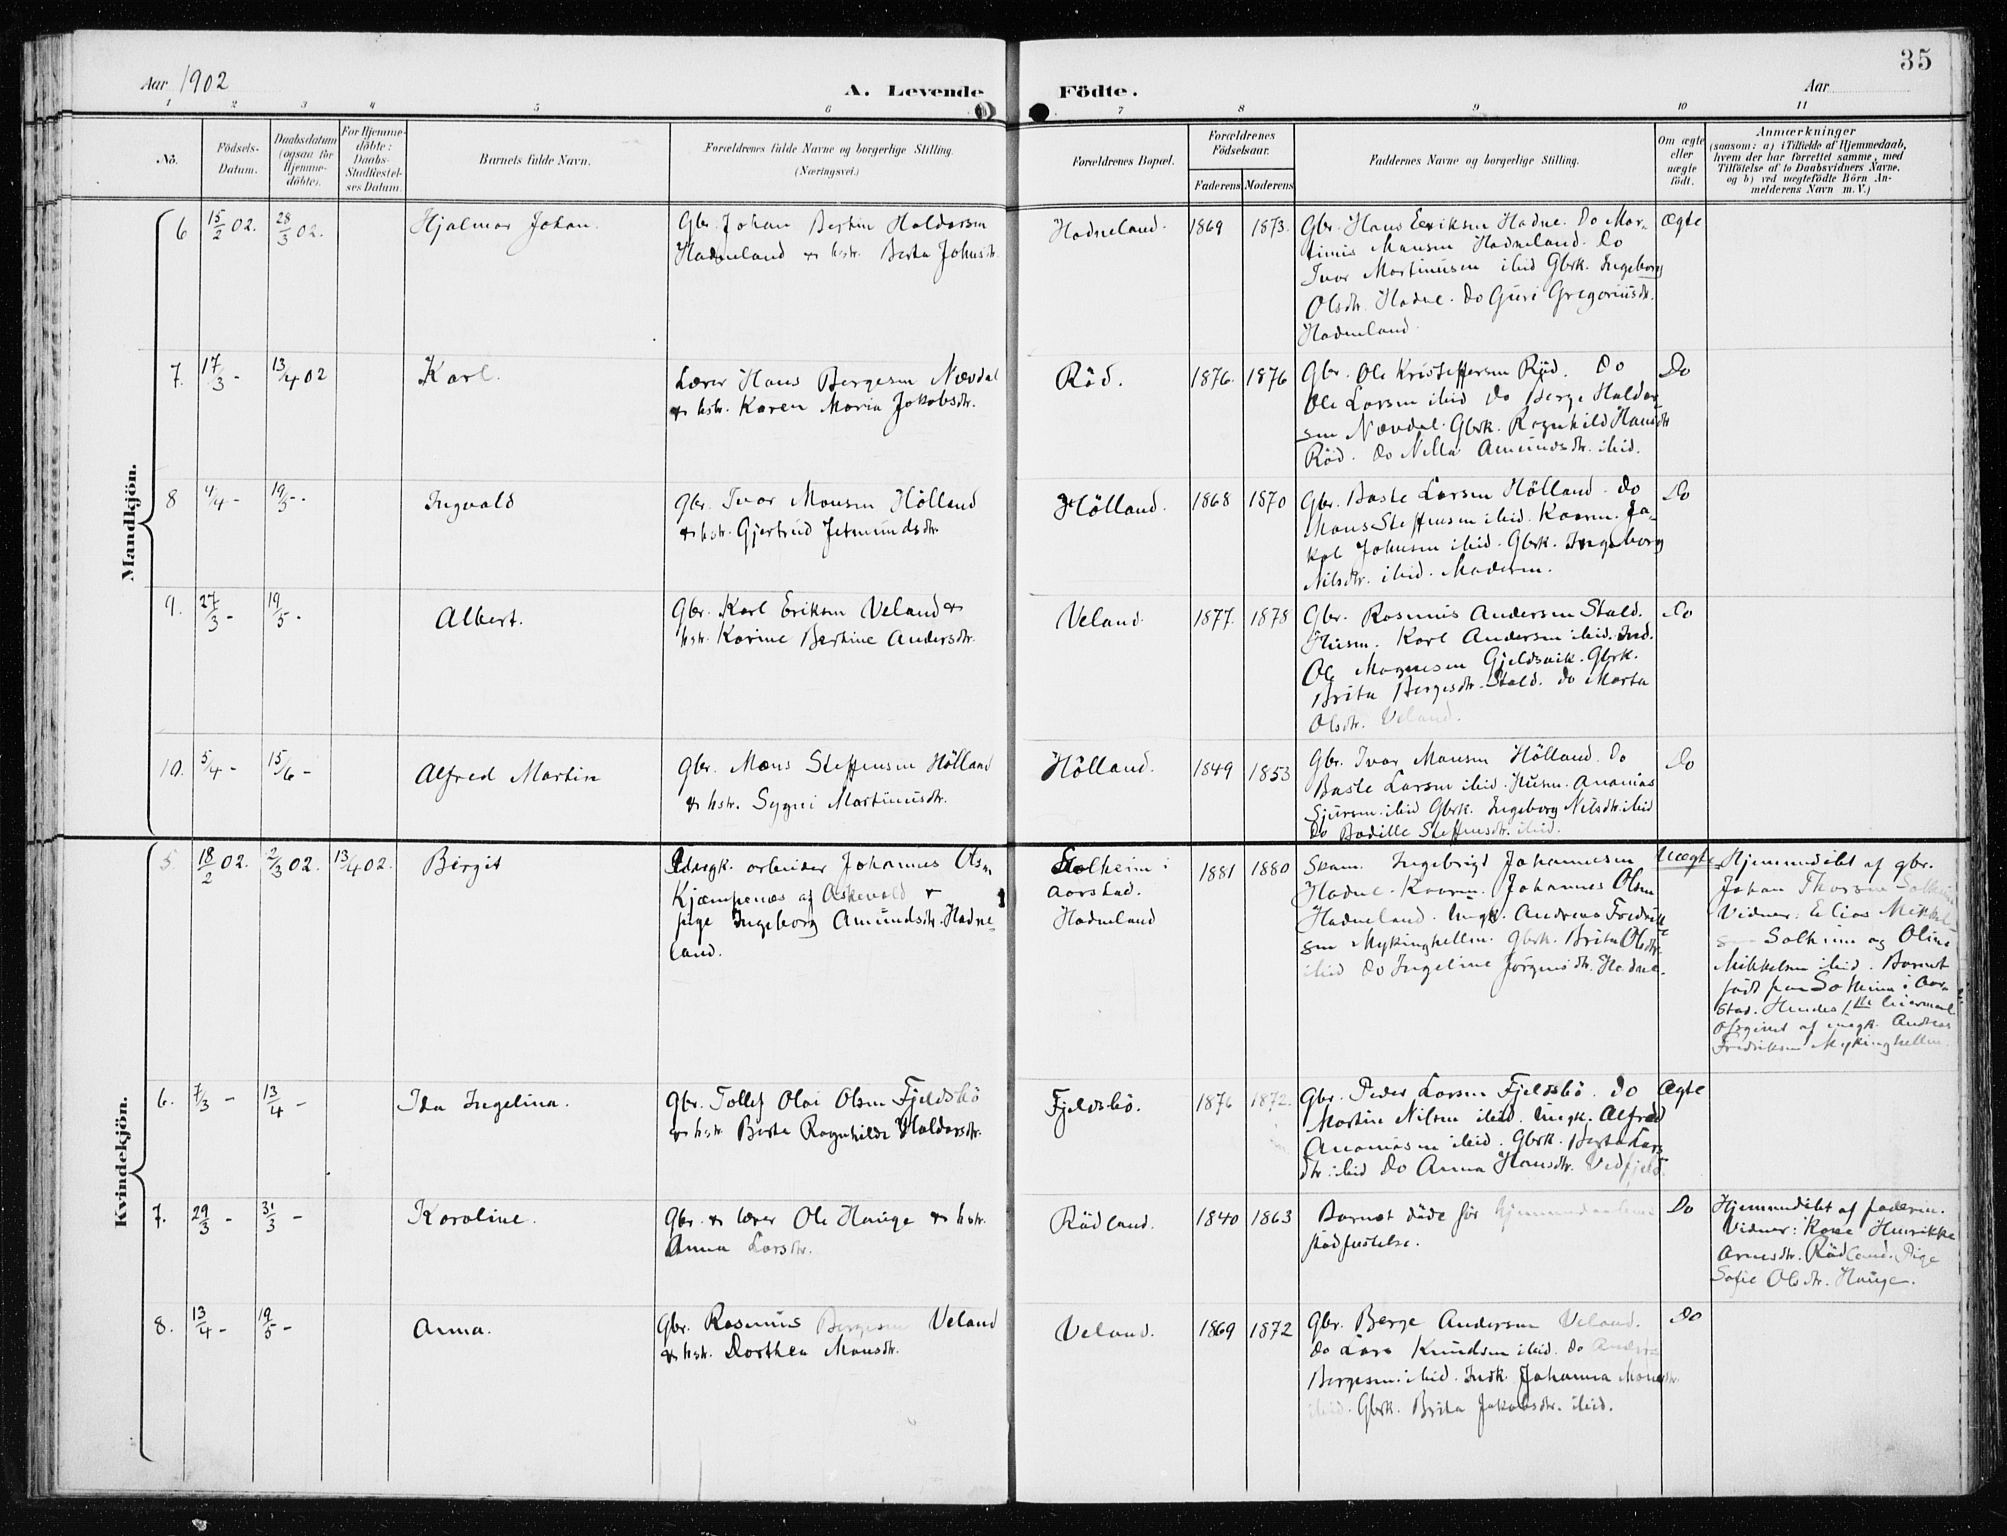 35
Aar 1902
A. Levende
Födte.
Aar
1 2 3 4 5 6 7 8 9 10 11
No.
Födsels-
Datum.
Daabsdatum
(ogsaa for
Hjemme-
döbte).
For Hjemme-
döbte:
Daabs-
Stadfæstel-
ses Datum.
Barnets fulde Navn.
Forældrenes fulde Navne og borgerlige Stilling.
(Næringsvei.)
Forældrenes Bopæl.
Forældrenes
Födselsaar.
Faderens Moderens
Faddernes Navne og borgerlige Stilling.
Om ægte
eller
uægte
födt.
Anmærkninger
(saasom: a) i Tilfælde af Hjemmedaab,
hvem der har forrettet samme, med
Tilföielse af to Daabsvidners Navne,
og b) ved uægtefödte Börn An-
melderens Navn m. V.)
Mandkjön.
6 15/2 02. 28/3 02.
Hjalmar Johan.
Gbr. Johan Bertin Haldorsen
Hadneland & hstr. Berta Johnsdtr.
Hadneland.
1869 1873.
Gbr. Hans Eeriksen Hadne. Do Mar-
tinus Monsen Hadneland. Do
Ivar Martinusen ibid Gbrk. Ingeborg
Olsdtr. Hadne. Do Guri Gregoriusdtr.
Hadneland.
Ægte
7. 17/3 - 13/4 02
Karl.
Lærer Hans Bergesen Nævdal
& hstr. Karen Maria Jakobsdtr.
Röd.
1876. 1876
Gbr. Ole Kristeffersen Röd. Do
Ole Larsen ibid Do Berge Haldor-
sen Nævdal. Gbrk. Ragnhild Hansdtr
Röd. Do Nella Amundsdtr. ibid.
Do
8 4/4 - 19/5 -.
Ingvald
Gbr. Ivar Monsen Hölland
& hstr. Gjertrud Jetmundsdtr.
Hölland.
1868 1870
Gbr. Baste Larsen Hölland. Do
Mons Steffensen ibid. Kaarm. Ja-
kob Johnsen ibid. Gbrk. Ingeborg
Nilsdtr. ibid. Moderen.
Do
9. 27/3 - 19/5 -
Albert.
Gbr. Karl Eriksen Veland &
hstr. Karine Bertine Andersdtr.
Veland.
1877. 1878
Gbr. Rasmus Andersen Stald.
Husm. Karl Andersen ibid. Ind.
Ole Magnesen Gjeldsvik. Gbrk.
Brita Bergesdtr. Stald. Do Marta
Olsdtr. Veland.
Do
10. 5/4 - 15/6 -
Alfred Martin
Gbr. Mons Steffensen Hölland
& hstr. Sygni Martinusdtr.
Hölland.
1849 1853
Gbr. Ivar Monsen Hölland. Do
Baste Larsen ibid. Husm. Ananias
Sjursen ibid Gbrk. Ingeborg Nilsdtr. ibid
Do Bodille Steffensdtr. ibid.
Do
Kvindekjön.
5. 18/2 02. 2/3 02. 13/4 02.
Birgit
Ungk. arbeider Johannes Olsen
Kjæmpenæs af Askevold &
pige Ingeborg Amundsdtr. Hadne-
land.
Solheim i
Aarstad.
Hadneland
1881 1880
Skom. Ingebrigt Johannesen
Hadne. Kaarm. Johannes Olsen
Hadneland. Ungk. Andreas Fredrik-
sen Mykinghellen. Gbrk. Brita Olsdtr.
ibid Do Ingeline Jørgensdtr. Hadne.
Uægte
Hjemmedöbt af gbr.
Johan Solheim
Vidner: Elias Mikkel-
sen Solheim og Oline
Mikkelsen ibid. Barnet
födt paa Solheim i Aar-
stad. Hendes 1ste leiermaal
Opgivet af ungk. Andreas
Fredriksen Mykinghellen.
6. 7/3 - 13/4 -
Ida Ingelina.
Gbr. Tollef Olai Olsen Fjeldsbö
& hstr. Berta Ragnhilda Haldorsdtr.
Fjeldsbö.
1876 1872.
Gbr. Peder Larsen Fjeldsbö. Do
Martin Nilsen ibid. Ungk. Alfred
Ananiasen ibid. Gbrk. Berta Lars-
dtr. ibid Do Anna Hansdtr. Vedfjeld.
Ægte
7. 29/3 - 31/3 -
Karoline.
Gbr. & lærer Ole Hauge & hstr.
Anna Larsdtr.
Rödland.
1840 1863
Barnet döde för hjemmedaabens
stadfæstelse.
Do
Hjemmedöbt af faderen.
Vidner: Kone Henrikke
Arnesdtr. Rödland. Pige
Sofie Olsdtr. Hauge.
8. 13/4 - 19/5 -
Anna.
Gbr. Rasmus Bergesen Veland
& hstr. Dorthea Monsdtr.
Veland.
1869 1872
Gbr. Berge Andersen Veland.
Do Lars Knudsen ibid. Do Anders
Bergesen ibid. Indk. Johanna Monsdtr.
ibid. Gbrk. Brita Jakobsdtr. ibid.
Do